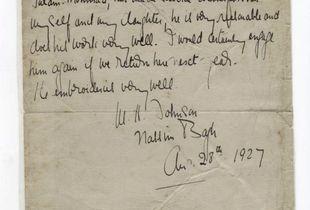 myself and my daughter, he is very reasonable and
does his work very well. I would certainly engage
him again if we return here next year.
He embroideries very well
Johnson
Bagh
28th 1927